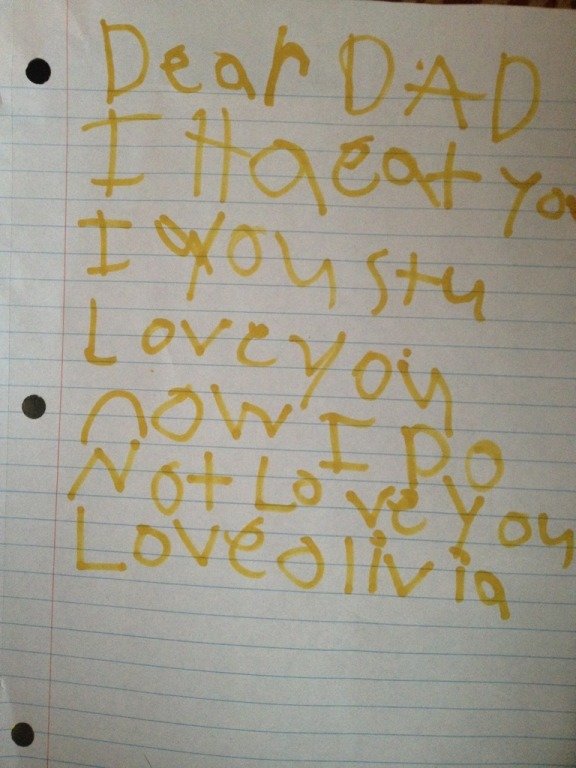 Dear DAD
I Haeat you
I you stu
Love you
now I Do
Not Love you
Love olivia